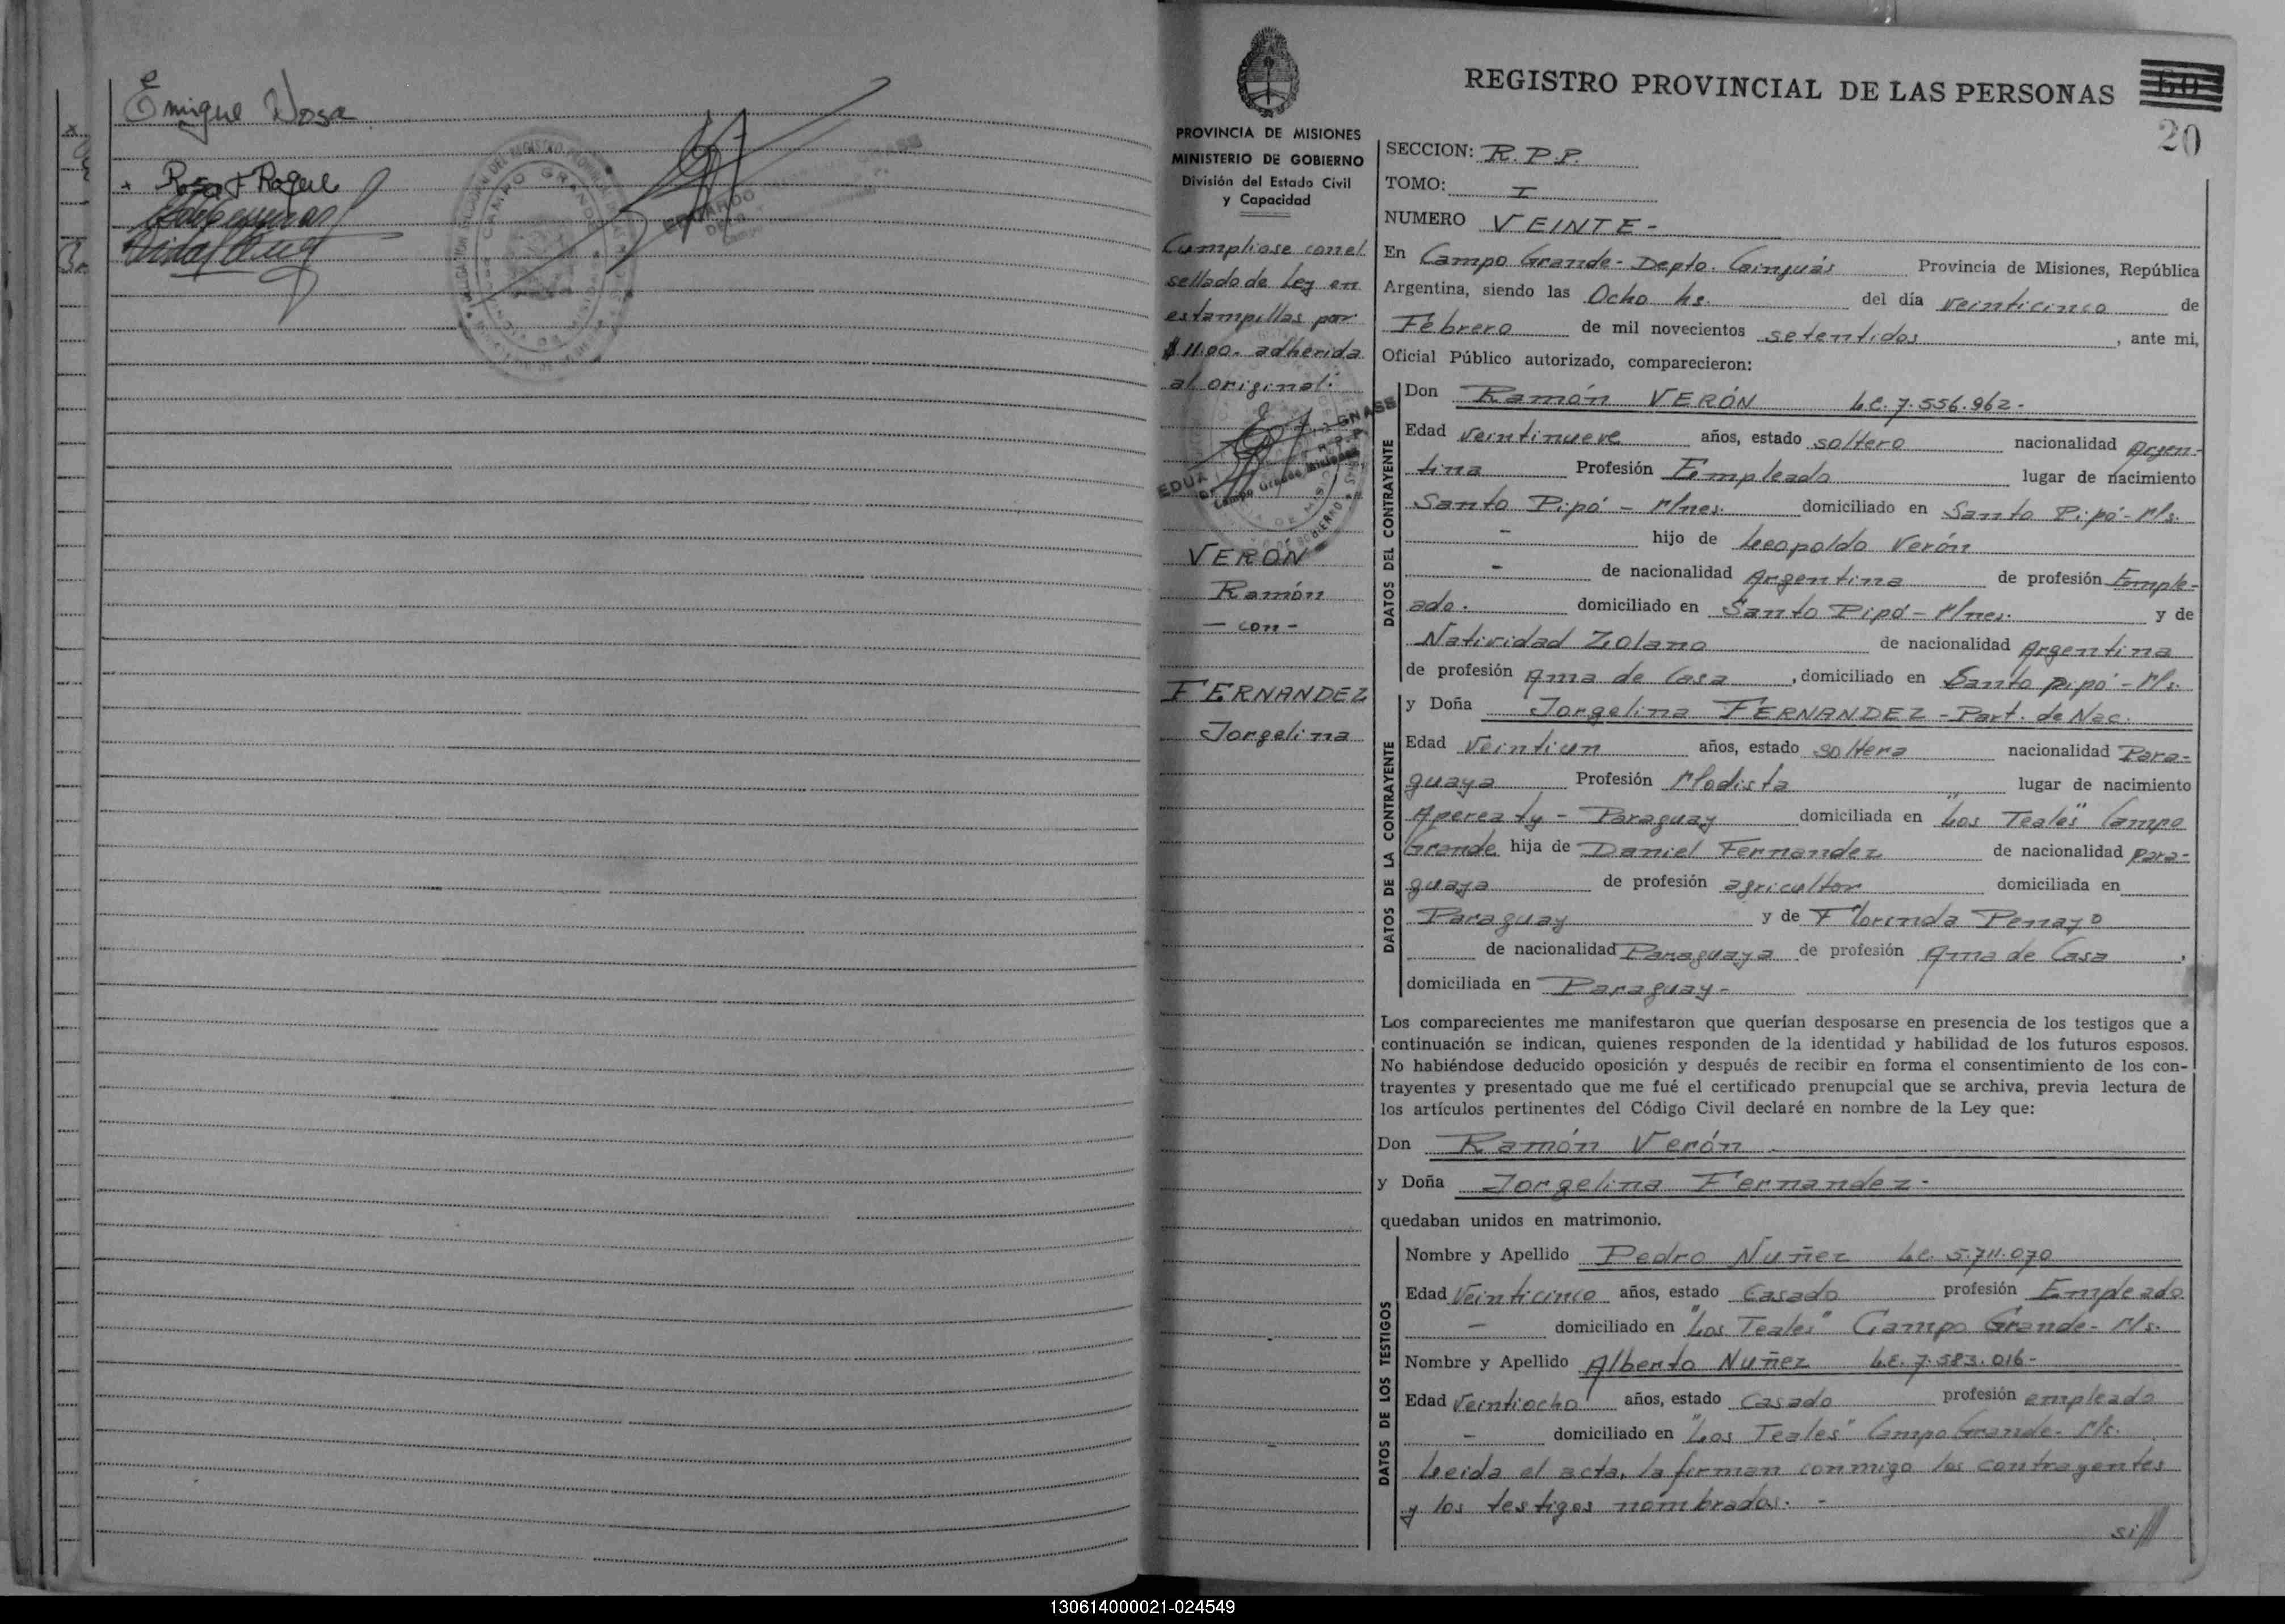 Enrique Sosa
Rosa F Raquel
REGISTRO PROVINCIAL DE LAS PERSONAS
20
PROVINCIA DE MISIONES
MINISTERIO DE GOBIERNO
División del Estado Civil
y Capacidad
Cumpliose con el
sellado de Ley en
estampillas por
$ 11.00. adherida
al original.
VERON
Ramón
- con -
FERNANDEZ
Jorgelina
SECCION: R.P.P.
TOMO: I
NUMERO VEINTE -
En Campo Grande - Depto. Cainguás Provincia de Misiones, República
Argentina, siendo las Ocho hs. del día veinticinco de
Febrero de mil novecientos setentidos, ante mi,
Oficial Público autorizado, comparecieron:
DATOS DEL CONTRAYENTE
Don Ramón VERÓN L.E. 7.556.962 -
Edad veintinueve años, estado soltero nacionalidad Argen-
tina Profesión Empleado lugar de nacimiento
Santo Pipó - Mnes. domiciliado en Santo Pipó - Ms.
- hijo de Leopoldo Verón
- de nacionalidad Argentina de profesión Emple-
ado. domiciliado en Santo Pipó - Mnes. y de
Natividad Zolano de nacionalidad Argentina
de profesión Ama de Casa, domiciliado en Santo pipó - Ms.
DATOS DE LA CONTRAYENTE
y Doña Jorgelina FERNANDEZ - Part. de Nac.
Edad Veintiun años, estado soltera nacionalidad Para-
guaya Profesión Modista lugar de nacimiento
Aperea ty - Paraguay domiciliada en "Los Teales" Campo
Grande hija de Daniel Fernandez de nacionalidad para-
guaya de profesión agricultor domiciliada en
Paraguay y de Florinda Penayo
de nacionalidad Paraguaya de profesión Ama de Casa,
domiciliada en Paraguay -
Los comparecientes me manifestaron que querían desposarse en presencia de los testigos que a
continuación se indican, quienes responden de la identidad y habilidad de los futuros esposos.
No habiéndose deducido oposición y después de recibir en forma el consentimiento de los con-
trayentes y presentado que me fué el certificado prenupcial que se archiva, previa lectura de
los artículos pertinentes del Código Civil declaré en nombre de la Ley que:
Don Ramón Verón
y Doña Jorgelina Fernandez -
quedaban unidos en matrimonio.
DATOS DE LOS TESTIGOS
Nombre y Apellido Pedro Nuñez L.E. 5.711.070
Edad Veinticinco años, estado Casado profesión Empleado
- domiciliado en "Los Teales" Campo Grande - Ms.
Nombre y Apellido Alberto Nuñez L.E. 7.583.016 -
Edad Veintiocho años, estado Casado profesión empleado
- domiciliado en "Los Teales" Campo Grande - Ms.
Leida el acta, la firman conmigo los contrayentes
y los testigos nombrados. -
si//
130614000021-024549